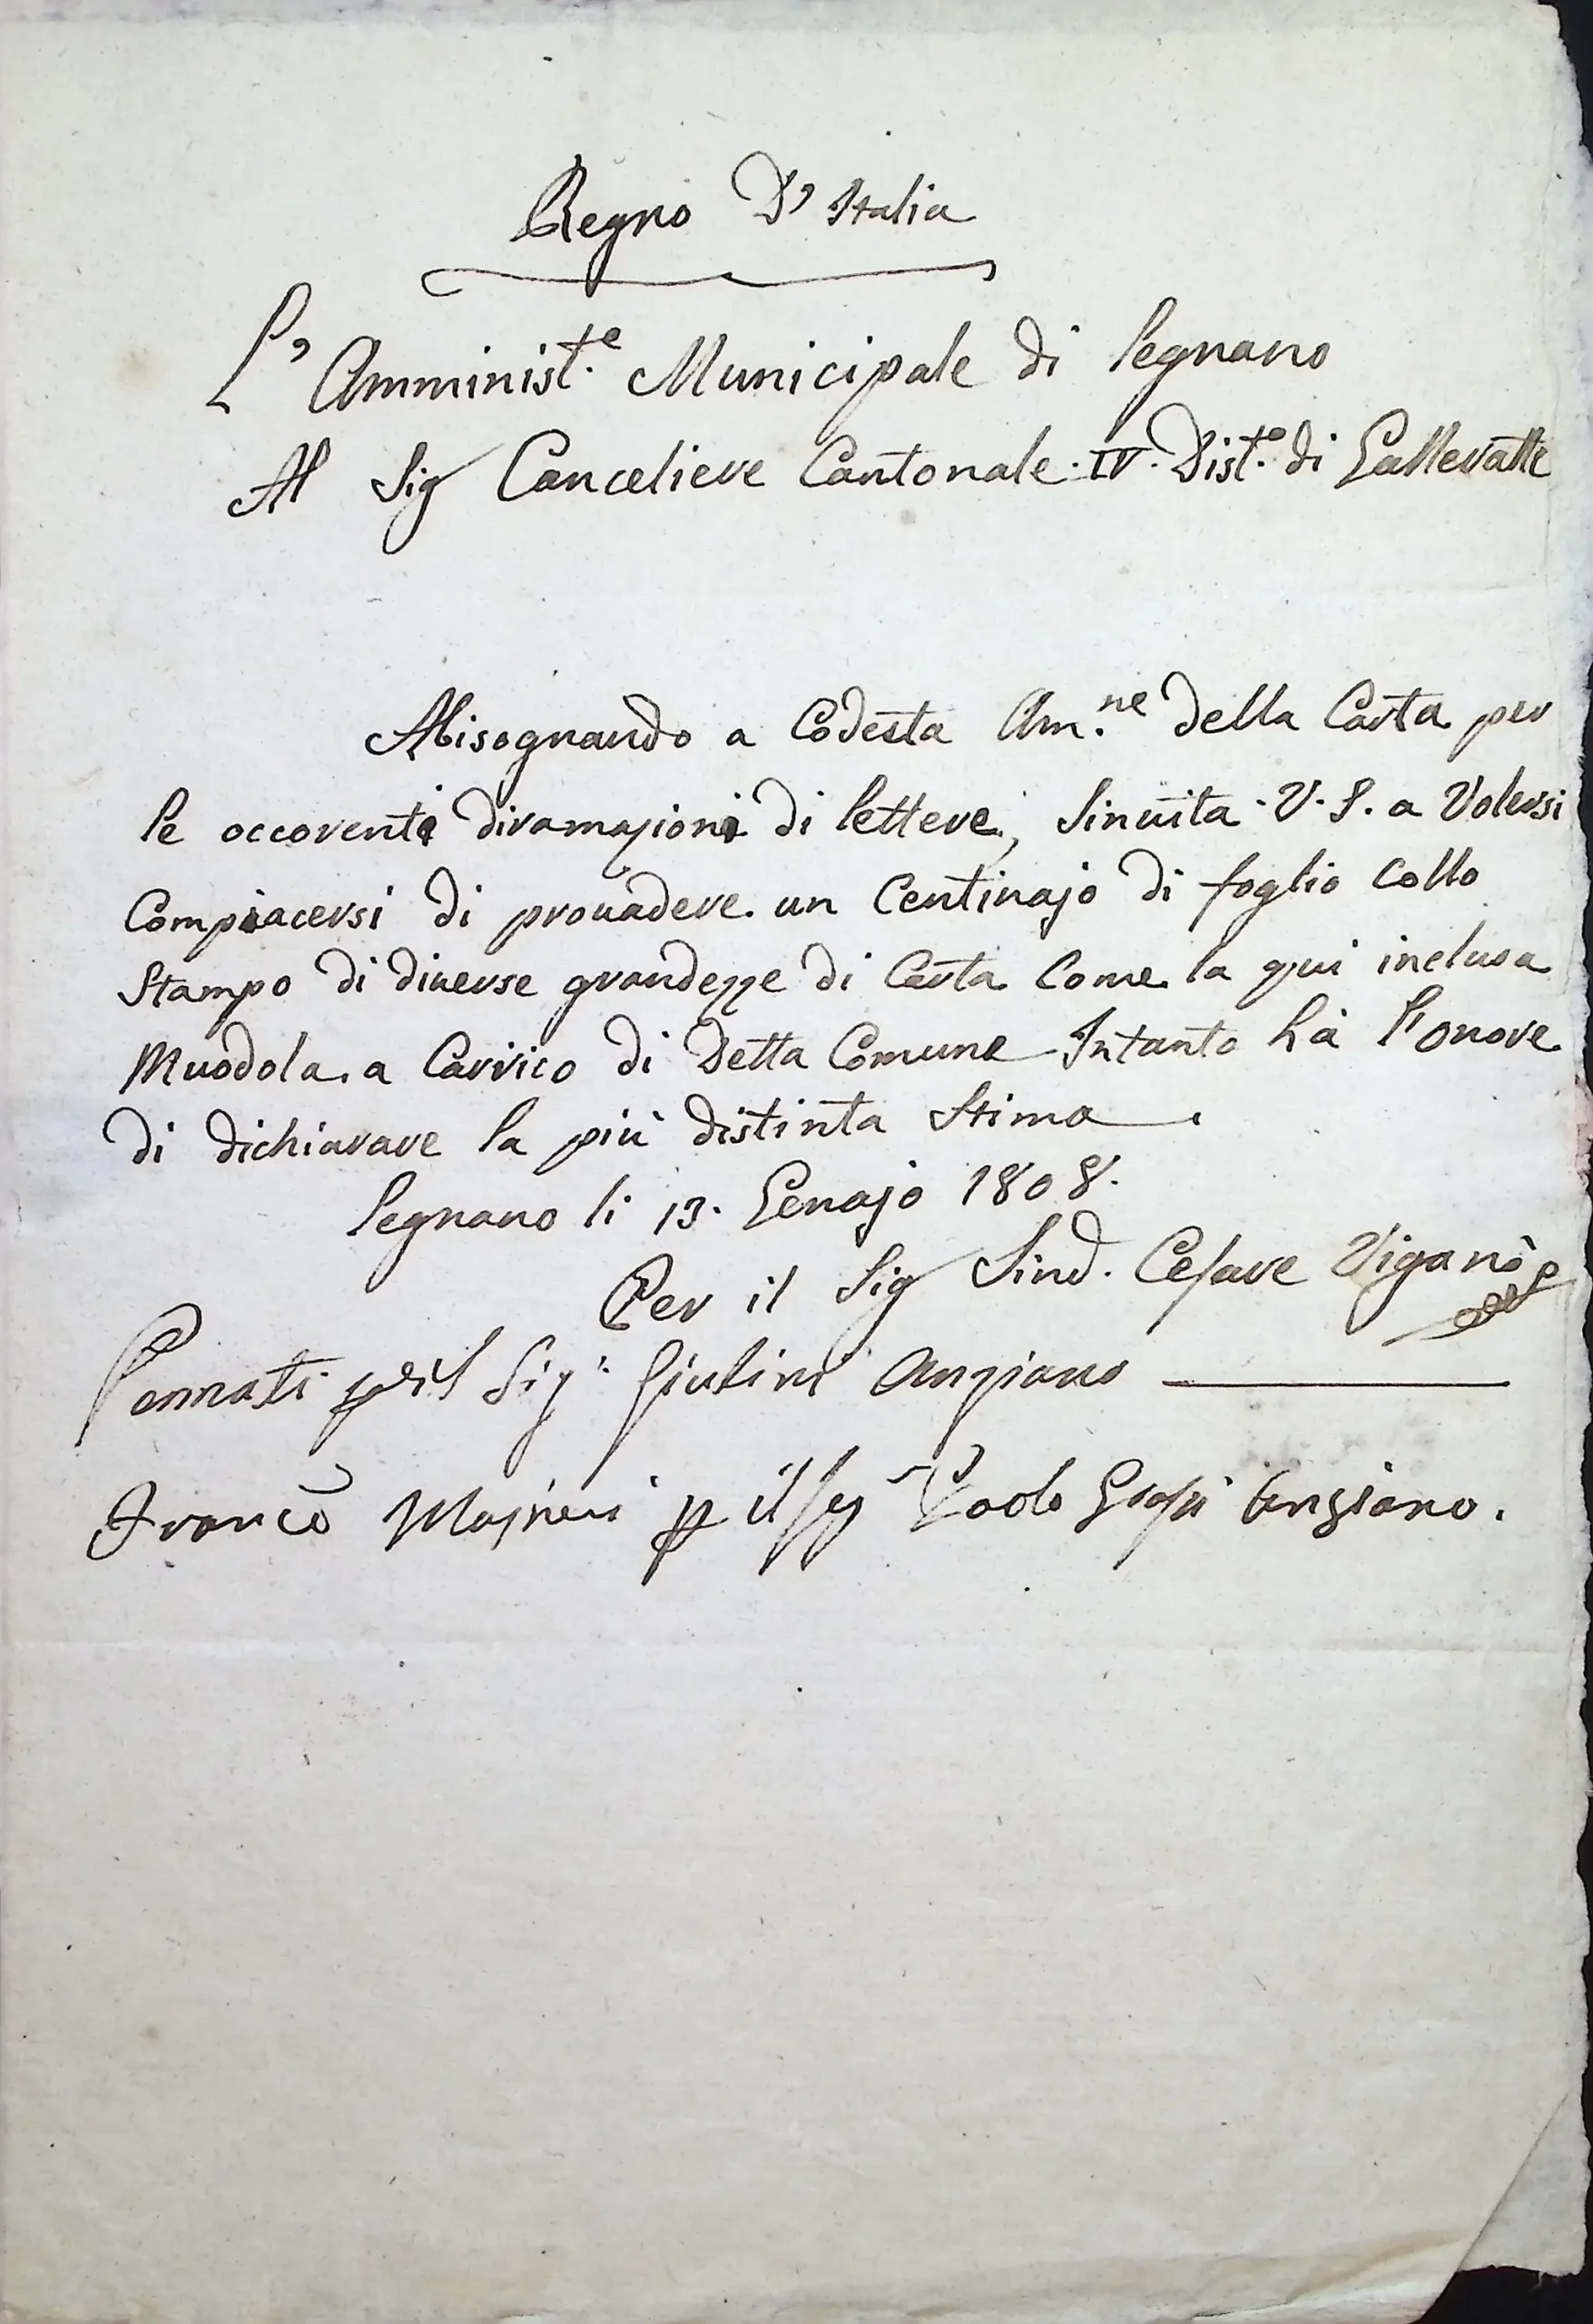 Regno D'Italia
L'Amminist.te Municipale di Legnano
Al Sig Canceliere Cantonale. IV. Dist.o di Galleratte
Abisognando a Codesta Am.ne della Carta per
le occorenti diramazioni di lettere; Sinuita. V. S. a Volersi
Compiacersi di prouadere un Centinajo di foglio Collo
Stampo di diuerse grandezze di Carta Come la qui inclusa
Muodola a Carrico di Detta Comune Intanto hà l'onore
di dichiarare la più distinta Stima
Legnano li 13. Genajo 1808.
Per il Sig Sind. Cesare Viganò
Pennati p il Sig.r Giulini Anziano
Franco p il Sig Paolo Anziano.